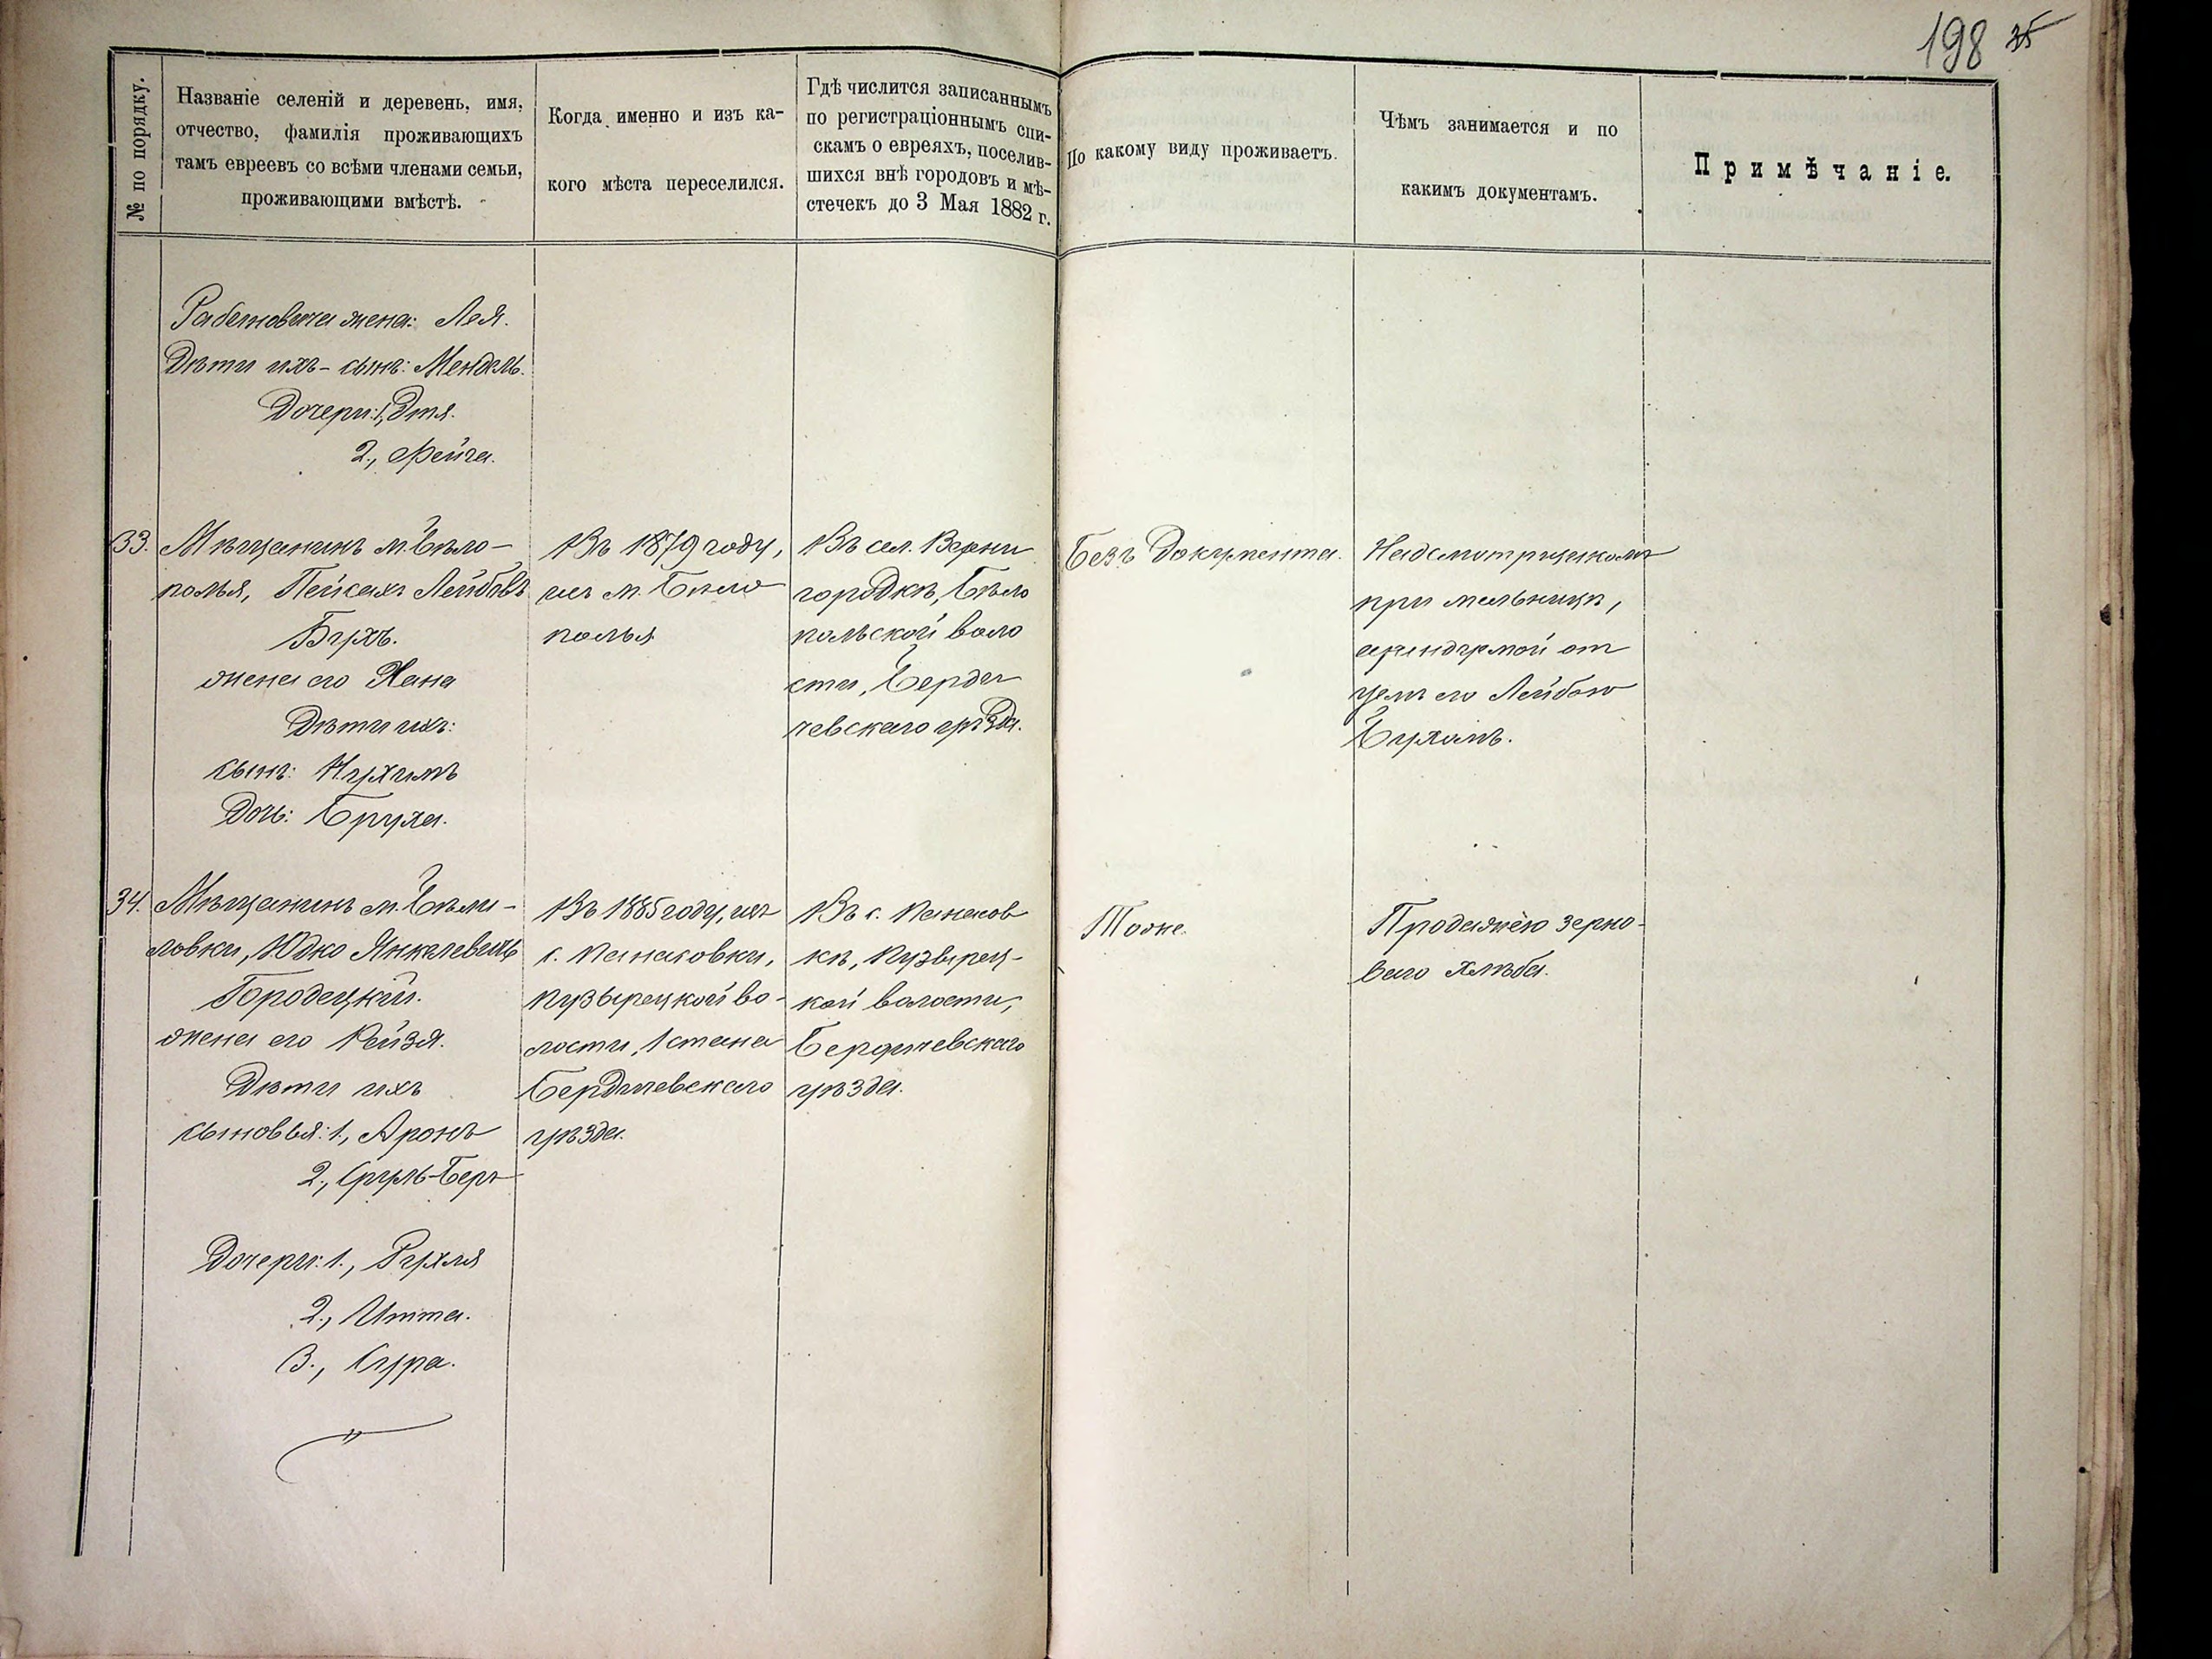 198 35
№ по порядку.
Названіе селеній и деревень, имя,
отчество, фамилія проживающихъ
тамъ евреевъ со всѣми членами семьи,
проживающими вмѣстѣ.
Когда именно и изъ ка-
кого мѣста переселился.
Гдѣ числится записаннымъ
по регистраціоннымъ спи-
скамъ о евреяхъ, поселив-
шихся внѣ городовъ и мѣ-
стечекъ до 3 Мая 1882 г.
По какому виду проживаетъ.
Чѣмъ занимается и по
какимъ документамъ.
Примѣчаніе.
жена: Лея.
Дѣти ихъ - сынъ: Мендель.
Дочери: 1, Этя.
2., Фейга.
33.
Мѣщанинъ м. Бѣло-
полья, Пейсахъ Лейбовъ
Бухъ.
жена его Хана
Дѣти ихъ:
сынъ: Нухимъ
Дочь: Бруха.
Въ 1879 году,
изъ м. Бѣло
полья
Въ сел. Верни
городкѣ, Бѣло
польской воло
сти, Берди
чевскаго уѣзда.
Безъ документа.
Надсмотрщикомъ
при мельницѣ,
арендуемой от
цемъ его Лейбою
Бухомъ.
34.
Мѣщанинъ м. Бѣли-
ловки, Юдко Янкелевичъ
Городецкій.
жена его Рейзя.
Дѣти ихъ
сыновья: 1., Аронъ
2., Сруль-Беръ
Дочери: 1., Рухля
2., Итта.
3., Сура.
Въ 1885 году, изъ
с. Панасовки,
Пузырецкой во-
лости, 1 стана
Бердичевскаго
уѣзда.
Въ с. Панасов
кѣ, Пузырец-
кой волости,
Бердичевскаго
уѣзда.
Тоже.
Продажею зерно-
ваго хлѣба.